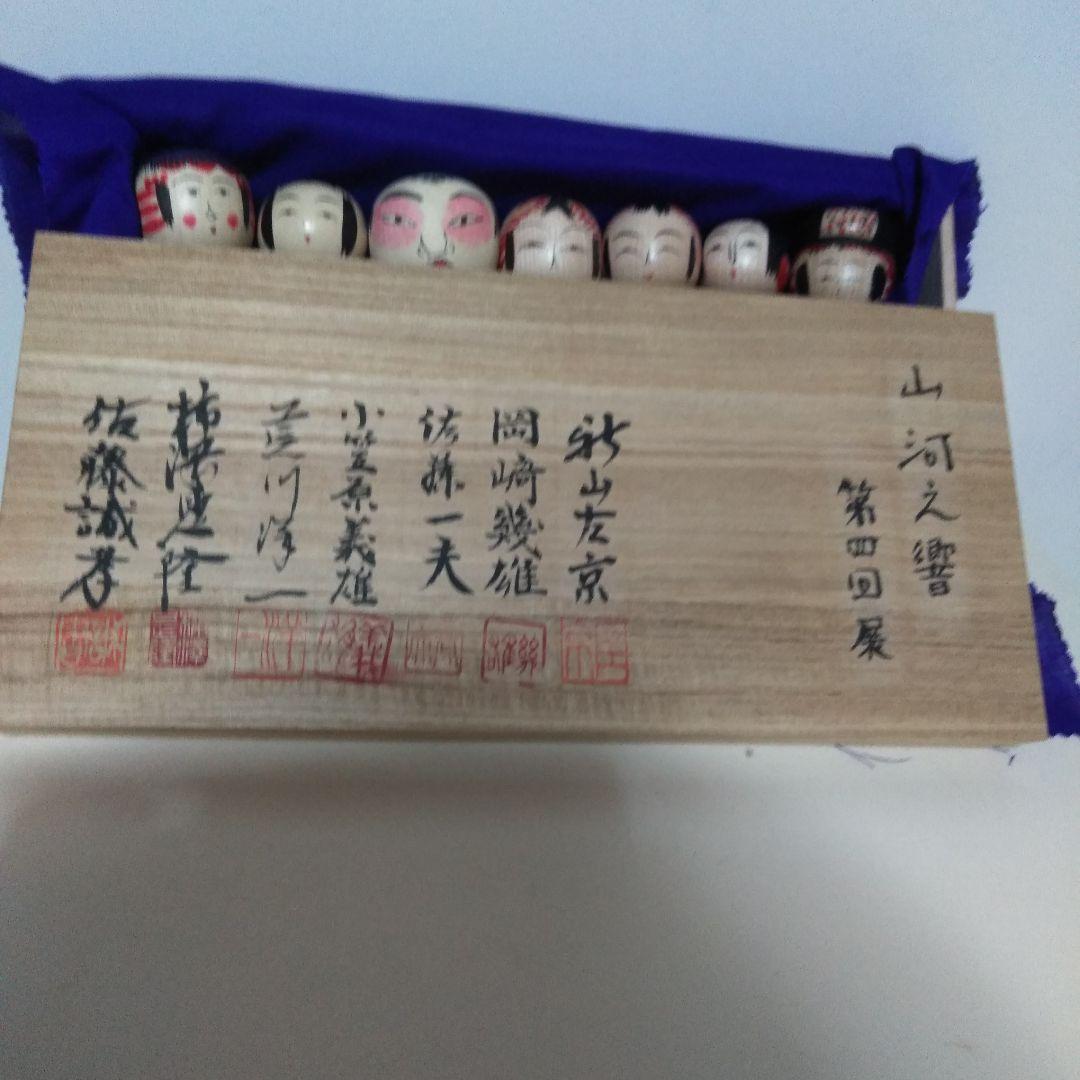 山河之響
第四回展
新山左京
岡崎幾雄
佐藤一夫
小笠原義雄
荒川洋一
柿澤是隆
佐藤誠孝